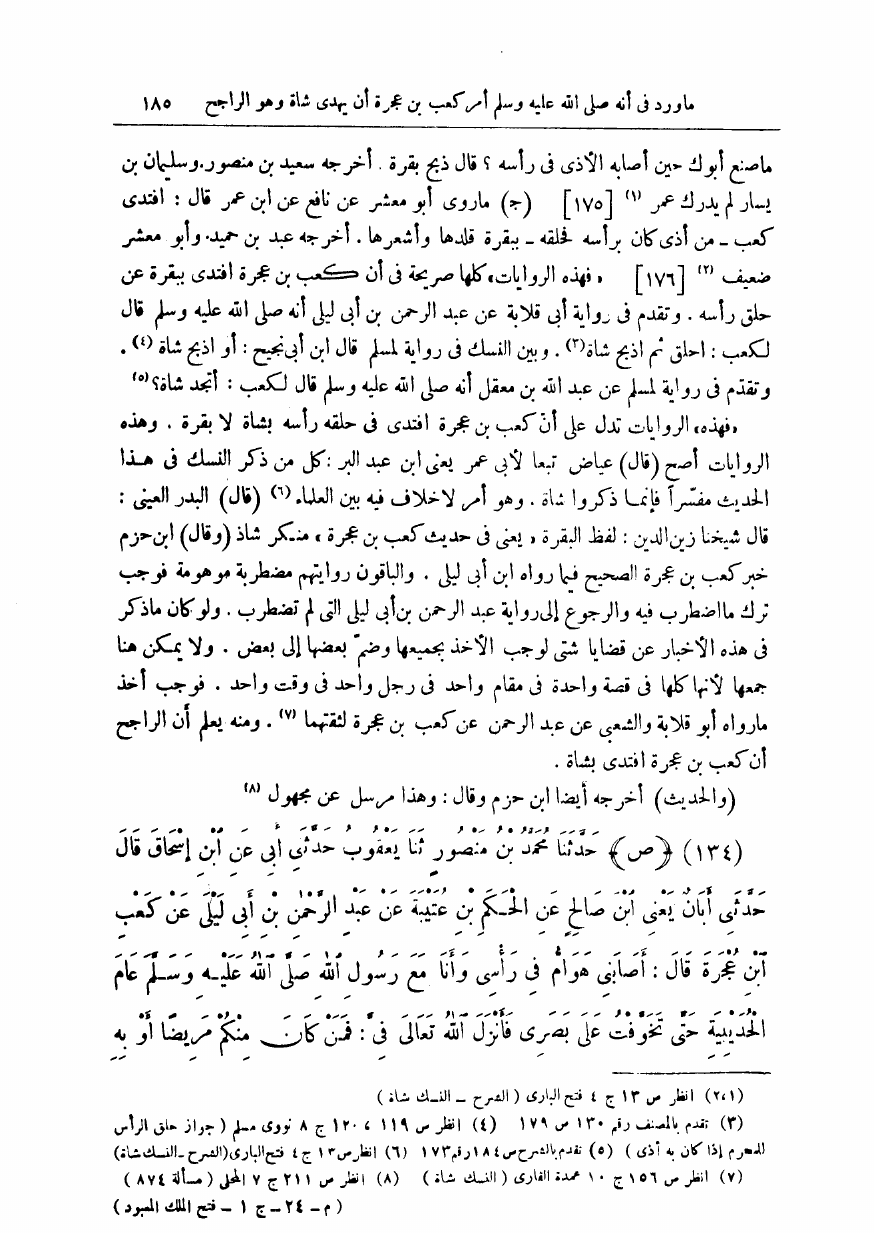 ماورد فى أنه صلى الله عليه وسلم أمر كعب بن عجرة أن يهدى شاة وهو الراجح ١٨٥
ماصنع أبوك حين أصابه الأذى فى رأسه ؟ قال ذبح بقرة . أخرجه سعيد بن منصور . وسليمان بن
يسار لم يدرك عمر (١) [١٧٥] (ج) ماروى أبو معشر عن نافع عن ابن عمر قال : افتدى
كعب - من أذى كان برأسه فحلقه - ببقرة قلدها وأشعرها . أخرجه عبد بن حميد . وأبو معشر
ضعيف (٢) [١٧٦] «فهذه الروايات» كلها صريحة فى أن كعب بن عجرة افتدى ببقرة عن
حلق رأسه . وتقدم فى رواية أبى قلابة عن عبد الرحمن بن أبى ليلى أنه صلى الله عليه وسلم قال
لكعب : احلق ثم اذبح شاة (٣) . وبين النسك فى رواية لمسلم قال ابن أبى نجيح : أو اذبح شاة (٤) .
وتقدم فى رواية لمسلم عن عبد الله بن معقل أنه صلى الله عليه وسلم قال لكعب : أتجد شاة؟ (٥)
«فهذه» الروايات تدل على أنّ كعب بن عجرة افتدى فى حلقه رأسه بشاة لا بقرة . وهذه
الروايات أصح (قال) عياض تبعا لأبى عمر يعنى ابن عبد البر : كل من ذكر النسك فى هذا
الحديث مفسّراً فإنما ذكروا شاة . وهو أمر لاخلاف فيه بين العلماء (٦) (قال) البدر العينى :
قال شيخنا زين الدين : لفظ البقرة «يعنى فى حديث كعب بن عجرة» منكر شاذ (وقال) ابن حزم
خبر كعب بن عجرة الصحيح فيما رواه ابن أبى ليلى . والباقون روايتهم مضطربة موهومة فوجب
ترك مااضطرب فيه والرجوع إلى رواية عبد الرحمن بن أبى ليلى التى لم تضطرب . ولو كان ماذكر
فى هذه الأخبار عن قضايا شتى لوجب الأخذ بجميعها وضمّ بعضها إلى بعض . ولا يمكن هنا
جمعها لأنها كلها فى قصة واحدة فى مقام واحد فى رجل واحد فى وقت واحد . فوجب أخذ
مارواه أبو قلابة والشعبى عن عبد الرحمن عن كعب بن عجرة لثقتهما (٧) . ومنه يعلم أن الراجح
أن كعب بن عجرة افتدى بشاة .
(والحديث) أخرجه أيضا ابن حزم وقال : وهذا مرسل عن مجهول (٨)
(١٣٤) ﴿ص﴾ حَدَّثَنَا مُحَمَّدُ بْنُ مَنْصُورٍ ثَنَا يَعْقُوبُ حَدَّثَنِى أَبِى عَنِ ابْنِ إِسْحَاقَ قَالَ
حَدَّثَنِى أَبَانُ يَعْنِى ابْنَ صَالِحٍ عَنِ الْحَكَمِ بْنِ عُتَيْبَةَ عَنْ عَبْدِ الرَّحْمٰنِ بْنِ أَبِى لَيْلَى عَنْ كَعْبِ
ابْنِ عُجْرَةَ قَالَ : أَصَابَنِى هَوَامُّ فِى رَأْسِى وَأَنَا مَعَ رَسُولِ اللهِ صَلَّى اللهُ عَلَيْهِ وَسَلَّمَ عَامَ
الْحُدَيْبِيَةِ حَتَّى تَخَوَّفْتُ عَلَى بَصَرِى فَأَنْزَلَ اللهُ تَعَالَى فِىَّ : فَمَنْ كَانَ مِنْكُمْ مَرِيضًا أَوْ بِهِ
(٢،١) انظر ص ١٣ ج ٤ فتح البارى ( الشرح - النسك شاة )
(٣) تقدم بالمصنف رقم ١٣٠ ص ١٧٩ (٤) انظر ص ١١٩ ، ١٢٠ ج ٨ نووى مسلم ( جواز حلق الرأس
للمحرم إذا كان به أذى ) (٥) تقدم بالشرح ص ١٨٤ رقم ١٧٣ (٦) انظر ص ١٣ ج ٤ فتح البارى (الشرح - النسك شاة)
(٧) انظر ص ١٥٦ ج ١٠ عمدة القارى ( النسك شاة ) (٨) انظر ص ٢١١ ج ٧ المحلى ( مسألة ٨٧٤ )
( م - ٢٤ - ج ١ - فتح الملك المعبود )